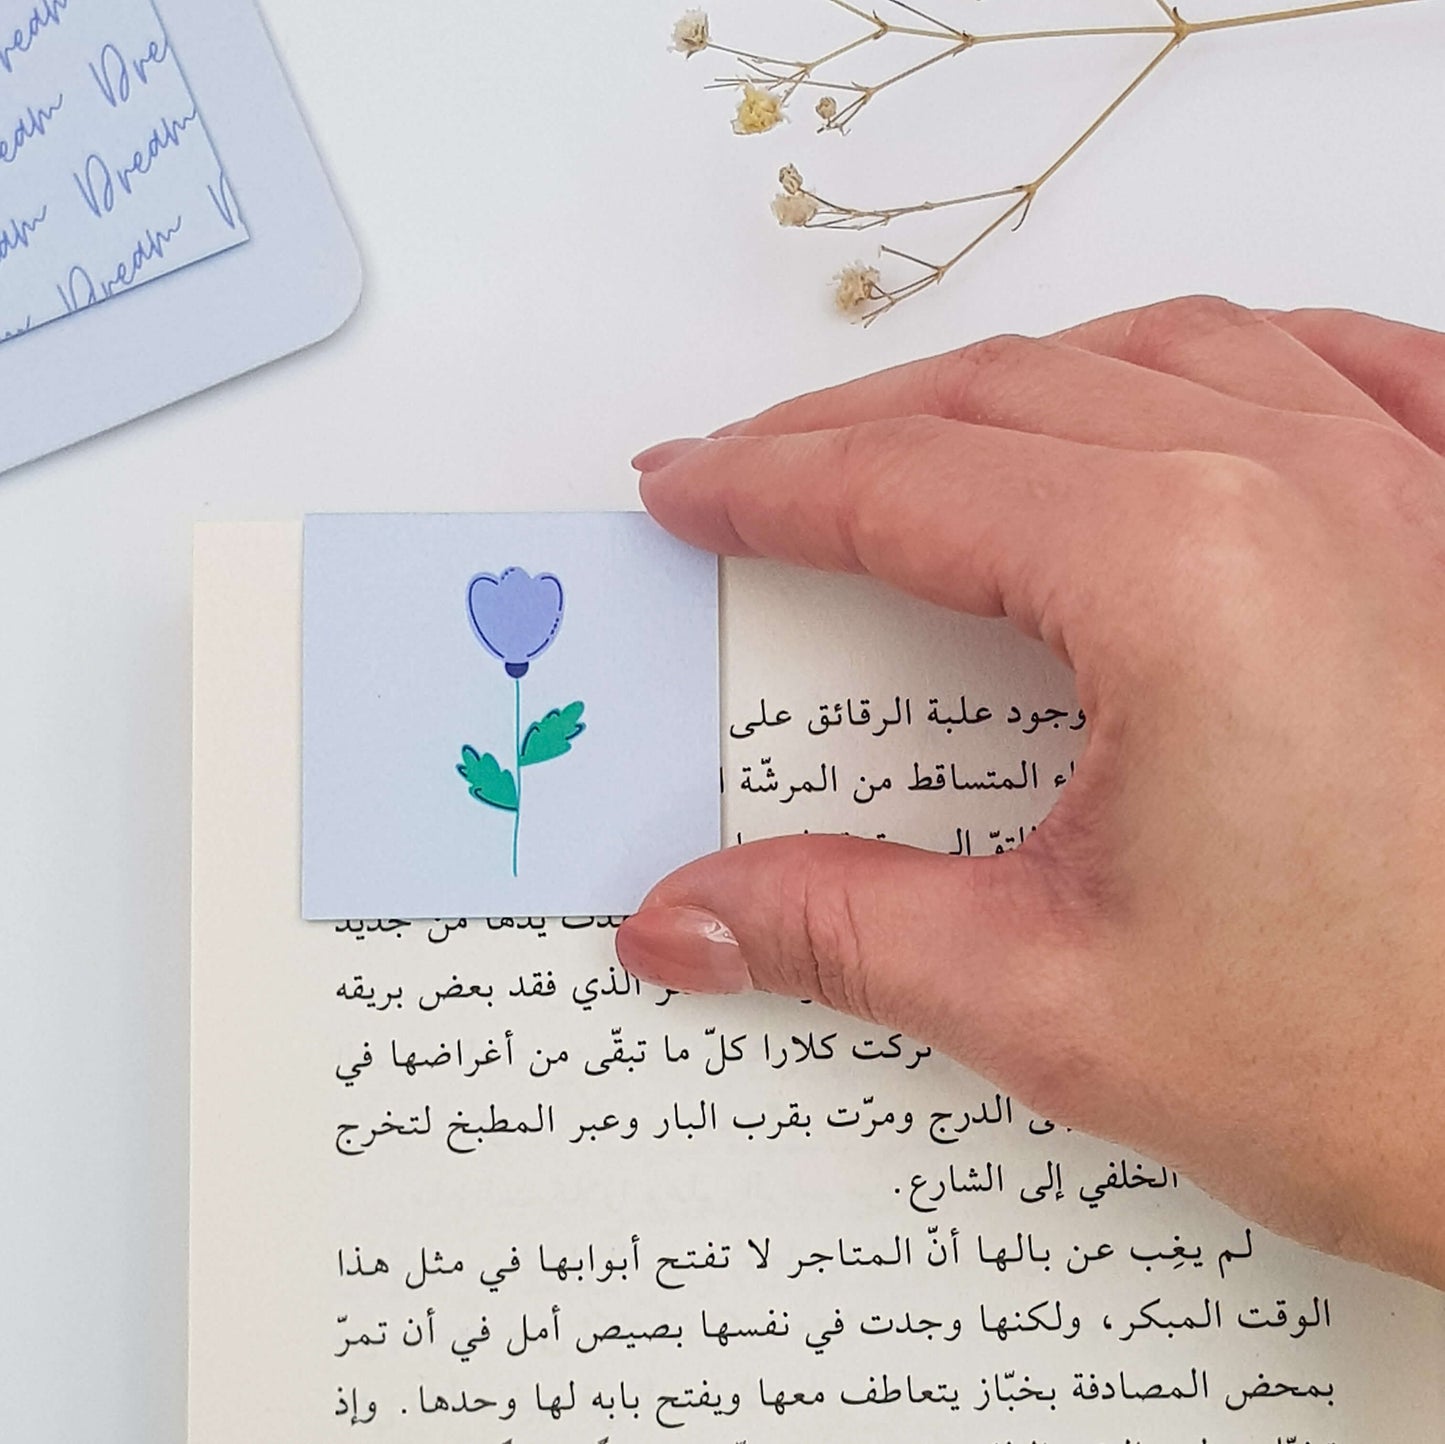 Dream
Dream
Dream
Dream
وجود علبة الرقائق على
المتساقط من المرشّة
يدها من جديد
الذي فقد بعض بريقه
تركت كلارا كلّ ما تبقّى من أغراضها في
الدرج ومرّت بقرب البار وعبر المطبخ لتخرج
الخلفي إلى الشارع.
لم يغِب عن بالها أنّ المتاجر لا تفتح أبوابها في مثل هذا
الوقت المبكر، ولكنها وجدت في نفسها بصيص أمل في أن تمرّ
بمحض المصادفة بخبّاز يتعاطف معها ويفتح بابه لها وحدها. وإذ